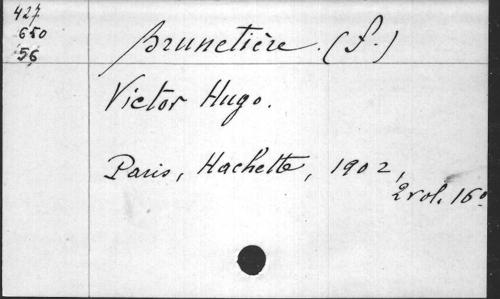 427
650
56
Brunetière. (F.)
Victor Hugo.
Paris, Hachette, 1902,
2 vol. 16º